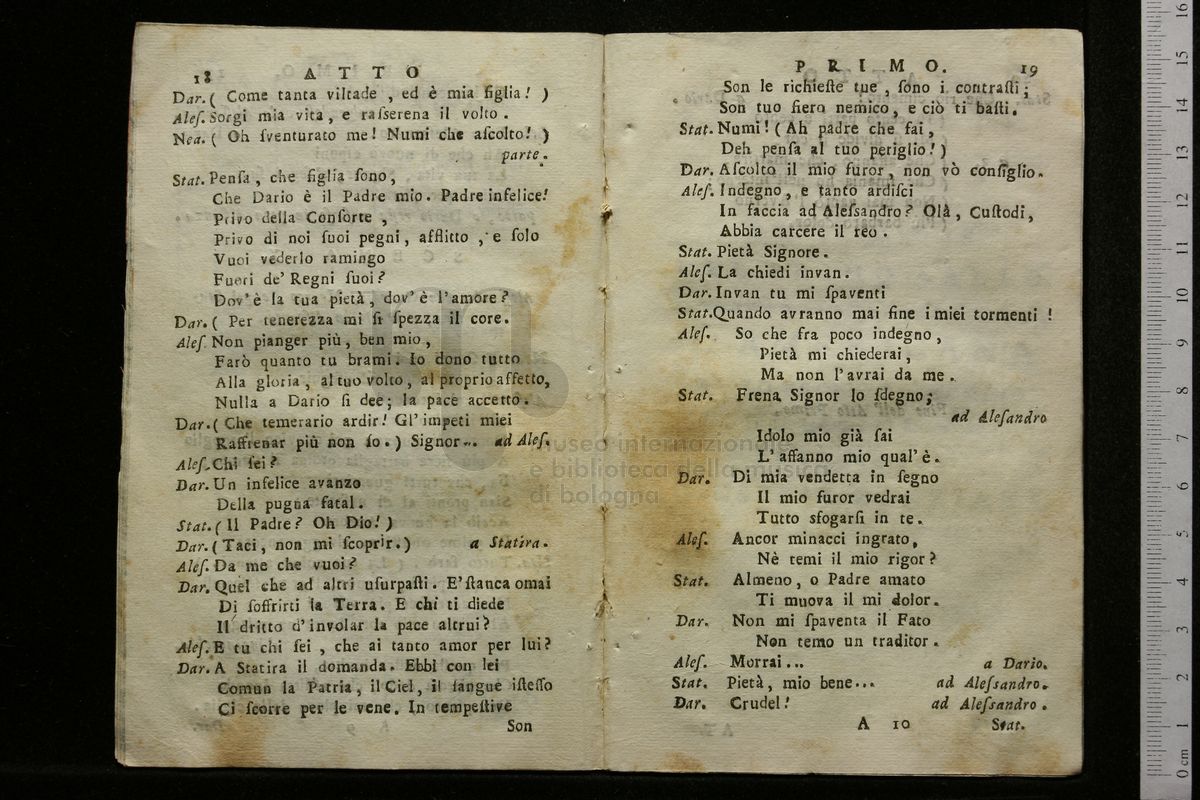 18 A T T O
Dar. ( Come tanta viltade , ed è mia figlia! )
Aleſ. Sorgi mia vita, e raſserena il volto .
Nea. ( Oh ſventurato me! Numi che aſcolto! )
parte.
Stat. Penſa , che figlia ſono,
Che Dario è il Padre mio. Padre infelice!
Privo della Conſorte ,
Privo di noi ſuoi pegni, afflitto , e ſolo
Vuoi vederlo ramingo
Fuori de' Regni ſuoi?
Dov'è la tua pietà , dov' è l'amore?
Dar. ( Per tenerezza mi ſi ſpezza il core.
Aleſ. Non pianger più, ben mio,
Farò quanto tu brami. Io dono tutto
Alla gloria , al tuo volto, al proprio affetto,
Nulla a Dario ſi dee; la pace accetto.
Dar. ( Che temerario ardir! Gl'impeti miei
Raffrenar più non ſo. ) Signor... ad Aleſ.
Aleſ. Chi ſei?
Dar. Un infelice avanzo
Della pugna fatal.
Stat. ( Il Padre? Oh Dio! )
Dar. ( Taci, non mi ſcoprir. ) a Statira.
Aleſ. Da me che vuoi?
Dar. Quel che ad altri uſurpaſti. E'ſtanca omai
Di ſoffrirti la Terra. E chi ti diede
Il dritto d'involar la pace altrui?
Aleſ. E tu chi ſei , che ai tanto amor per lui?
Dar. A Statira il domanda. Ebbi con lei
Comun la Patria, il Ciel, il ſangue iſteſſo
Ci ſcorre per le vene. In tempeſtive
Son
P R I M O. 19
Son le richieſte tue , ſono i contraſti;
Son tuo fiero nemico, e ciò ti baſti.
Stat. Numi! ( Ah padre che fai,
Deh penſa al tuo periglio! )
Dar. Aſcolto il mio furor, non vò conſiglio.
Aleſ. Indegno, e tanto ardiſci
In faccia ad Aleſsandro? Olà, Cuſtodi,
Abbia carcere il reo.
Stat. Pietà Signore.
Aleſ. La chiedi invan.
Dar. Invan tu mi ſpaventi
Stat. Quando avranno mai fine i miei tormenti !
Aleſ. So che fra poco indegno,
Pietà mi chiederai,
Ma non l'avrai da me.
Stat. Frena Signor lo ſdegno;
ad Aleſandro
Idolo mio già ſai
L'affanno mio qual'è.
Dar. Di mia vendetta in ſegno
Il mio furor vedrai
Tutto sfogarſi in te.
Aleſ. Ancor minacci ingrato,
Nè temi il mio rigor?
Stat. Almeno, o Padre amato
Ti muova il mi dolor.
Dar. Non mi ſpaventa il Fato
Non temo un traditor.
Aleſ. Morrai... a Dario.
Stat. Pietà, mio bene... ad Aleſsandro.
Dar. Crudel! ad Aleſsandro.
A 10 Stat.
museo internazionale
e biblioteca della musica
di bologna
0 cm 1 2 3 4 5 6 7 8 9 10 11 12 13 14 15 16